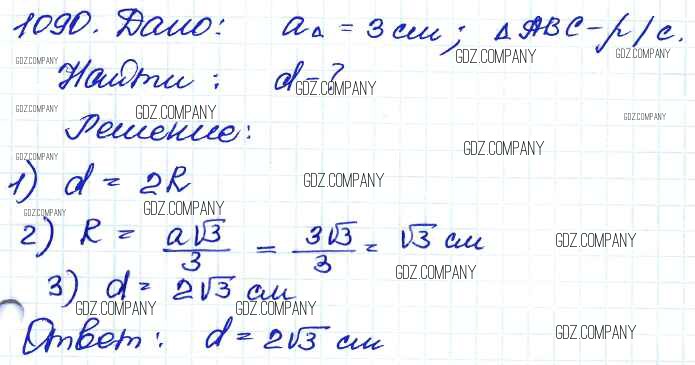 1090. Дано: a△ = 3 см; △ABC – р/с.
GDZ.COMPANY GDZ.COMPANY GDZ.COMPANY
Найти: d – ?
GDZ.COMPANY GDZ.COMPANY
GDZ.COMPANY GDZ.COMPANY GDZ.COMPANY
Решение:
GDZ.COMPANY GDZ.COMPANY
1) d = 2R
GDZ.COMPANY
GDZ.COMPANY GDZ.COMPANY
2) R = a√3/3 = 3√3/3 = √3 см
GDZ.COMPANY
GDZ.COMPANY
3) d = 2√3 см
GDZ.COMPANY GDZ.COMPANY
Ответ: d = 2√3 см
GDZ.COMPANY